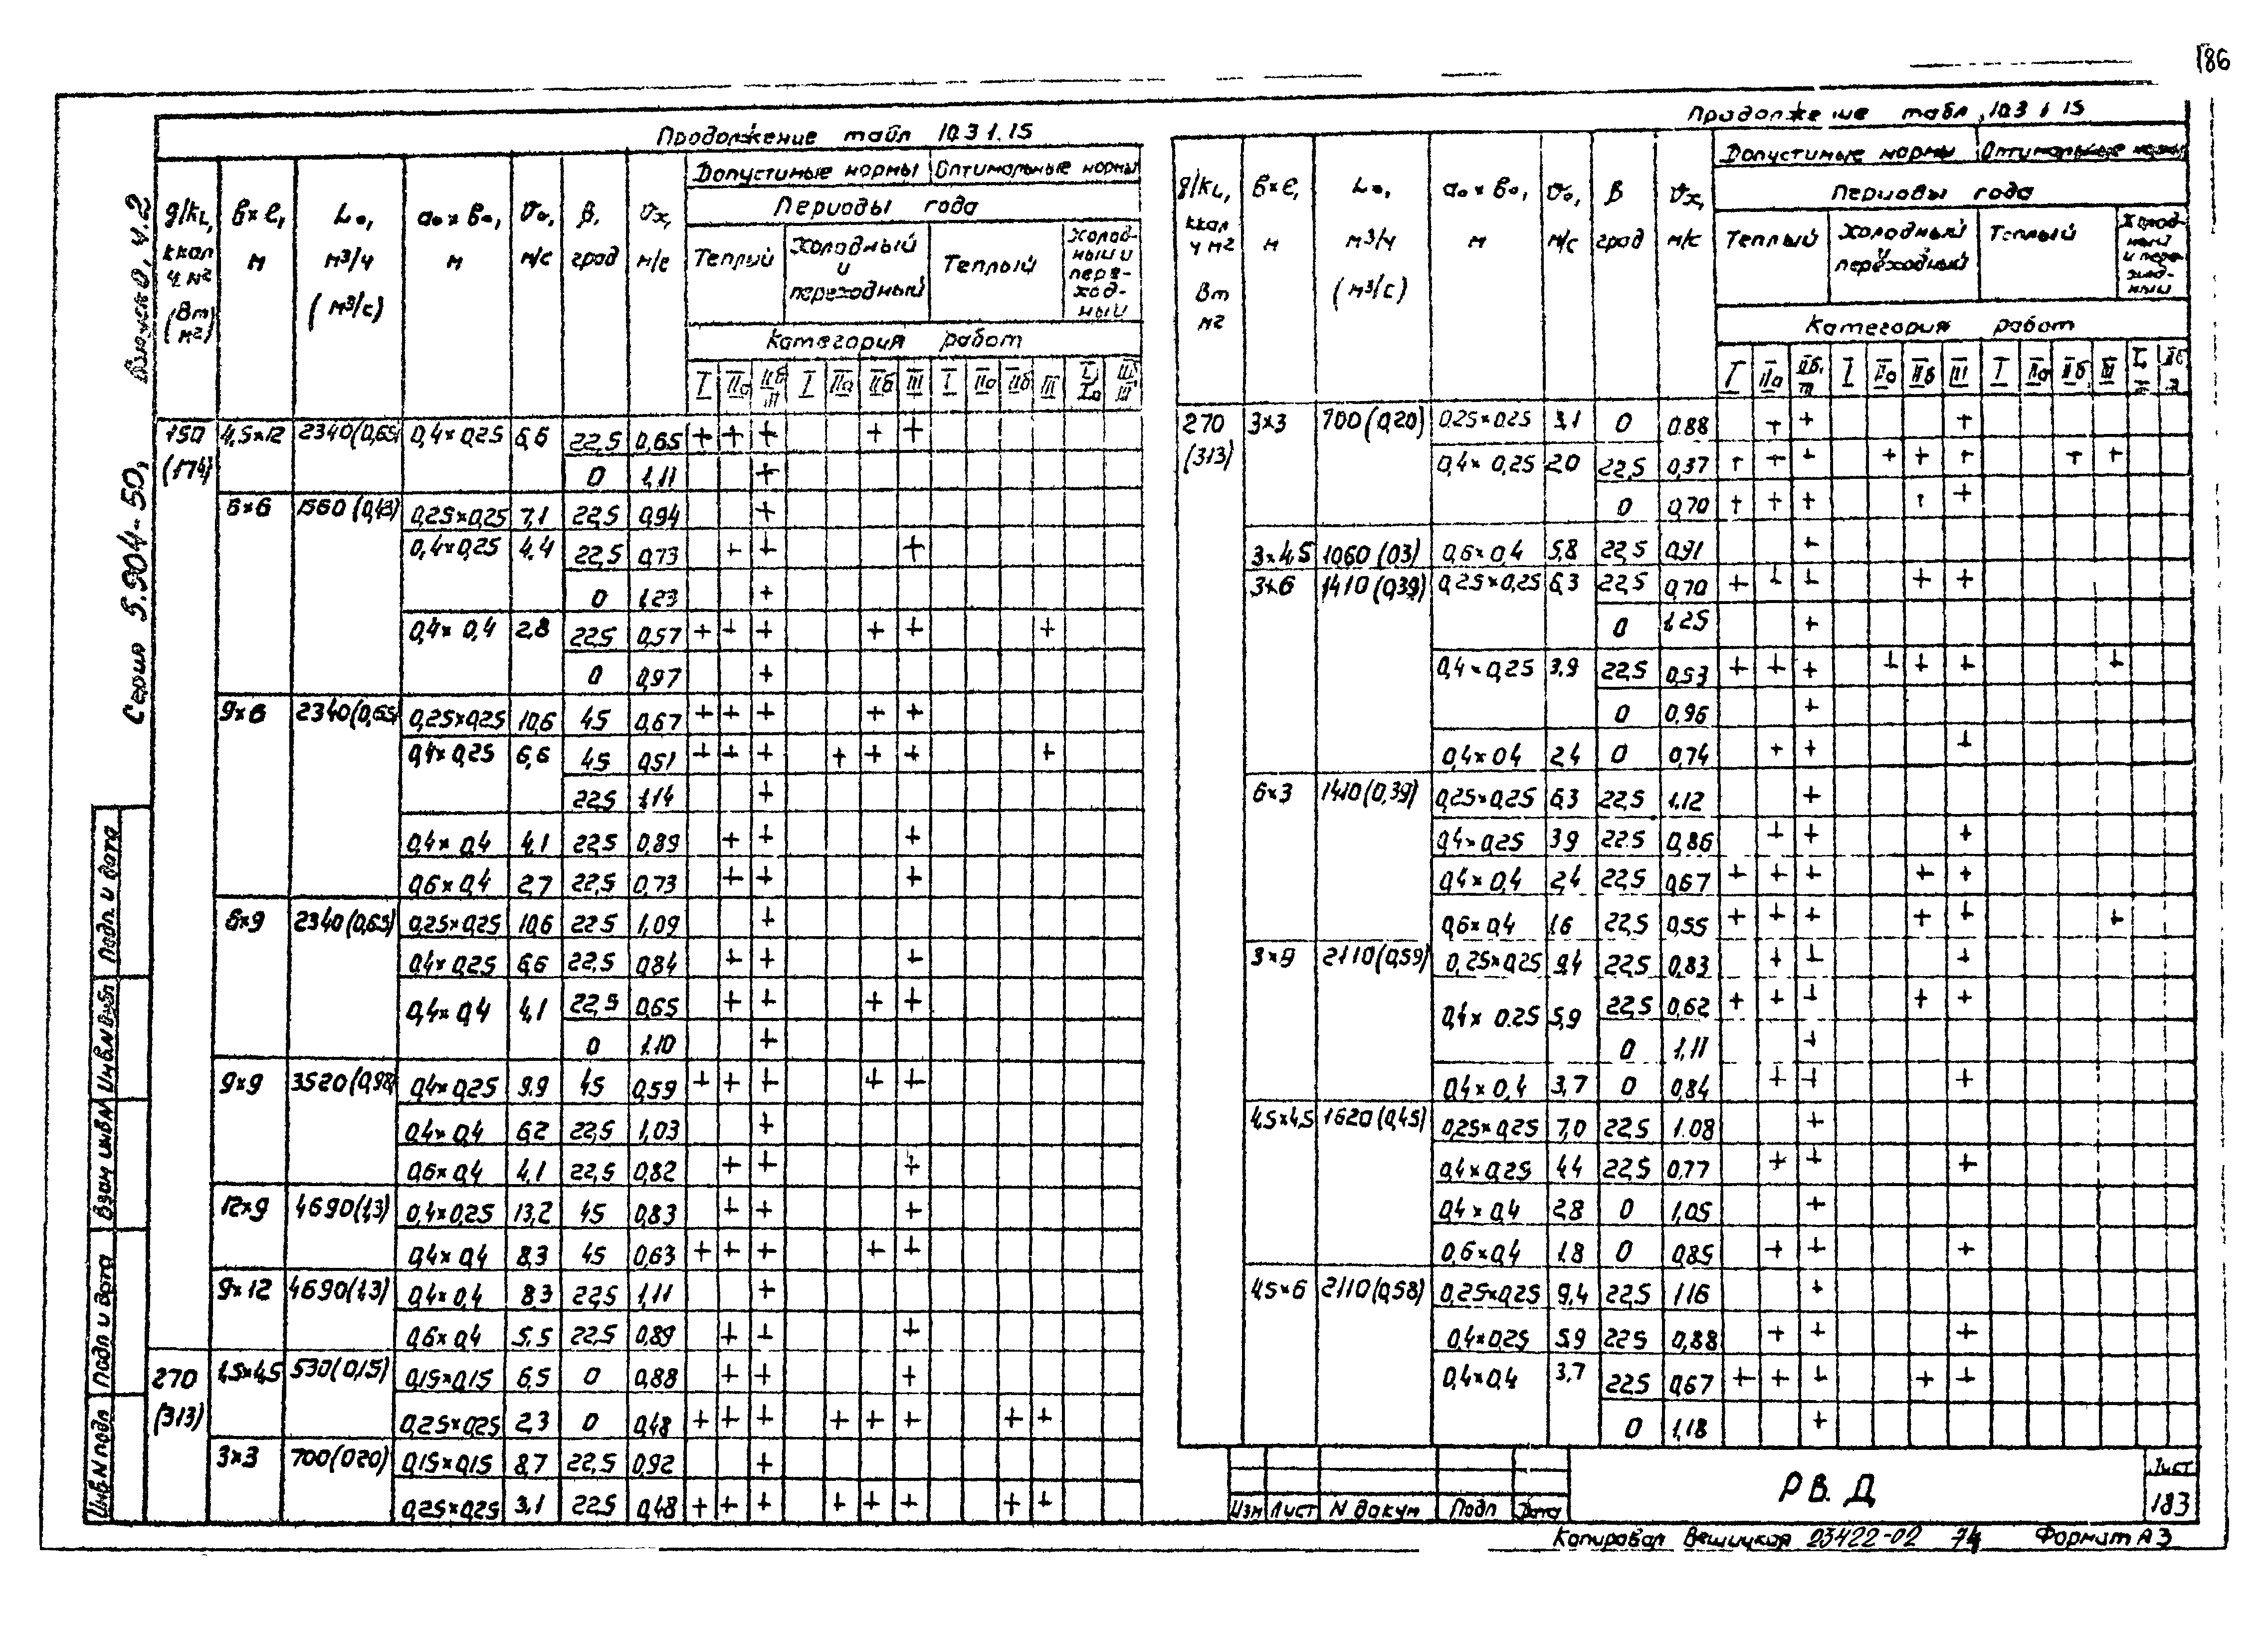 186
Серия 5.904-50, Выпуск 0, ч.2
Продолжение табл 10.3 1.15
g/kL, ккал ч м² (Вт м²) | в×l, м | Lо, м³/ч (м³/с) | aо×во, м | vо, м/с | β, град | vх, м/с | Допустимые нормы | Оптимальные нормы
Периоды года
Теплый | Холодный и переходный | Теплый | Холодный и переходный
Категория работ
I | IIа | IIб III | I | IIа | IIб | III | I | IIа | IIб | III | I, IIа | IIб III
150 (174) | 4,5×12 | 2340(0,65) | 0,4×0,25 | 6,6 | 22,5 | 0,65 | + + + + +
0 | 1,11 | +
6×6 | 1560 (0,43) | 0,25×0,25 | 7,1 | 22,5 | 0,94 | +
0,4×0,25 | 4,4 | 22,5 | 0,73 | + + +
0 | 1,23 | +
0,4×0,4 | 2,8 | 22,5 | 0,57 | + + + + + +
0 | 0,97 | +
9×6 | 2340(0,65) | 0,25×0,25 | 10,6 | 45 | 0,67 | + + + + +
0,4×0,25 | 6,6 | 45 | 0,51 | + + + + + + +
22,5 | 1,14 | +
0,4×0,4 | 4,1 | 22,5 | 0,89 | + + +
0,6×0,4 | 2,7 | 22,5 | 0,73 | + + +
6×9 | 2340(0,65) | 0,25×0,25 | 10,6 | 22,5 | 1,09 | +
0,4×0,25 | 6,6 | 22,5 | 0,84 | + + +
0,4×0,4 | 4,1 | 22,5 | 0,65 | + + + +
0 | 1,10 | +
9×9 | 3520(0,98) | 0,4×0,25 | 9,9 | 45 | 0,59 | + + + + +
0,4×0,4 | 6,2 | 22,5 | 1,03 | +
0,6×0,4 | 4,1 | 22,5 | 0,82 | + + +
12×9 | 4690(1,3) | 0,4×0,25 | 13,2 | 45 | 0,83 | + + +
0,4×0,4 | 8,3 | 45 | 0,63 | + + + + +
9×12 | 4690(1,3) | 0,4×0,4 | 8,3 | 22,5 | 1,11 | +
0,6×0,4 | 5,5 | 22,5 | 0,89 | + + +
270 (313) | 1,5×4,5 | 530(0,15) | 0,15×0,15 | 6,5 | 0 | 0,88 | + + +
0,25×0,25 | 2,3 | 0 | 0,48 | + + + + + + + +
3×3 | 700(0,20) | 0,15×0,15 | 8,7 | 22,5 | 0,92 | +
0,25×0,25 | 3,1 | 22,5 | 0,48 | + + + + + + + +
Продолжение табл. 10.3 1.15
g/kL, ккал ч м² Вт м² | в×l, м | Lо, м³/ч (м³/с) | aо×во, м | vо, м/с | β град | vх, м/с | Допустимые нормы | Оптимальные нормы
Периоды года
Теплый | Холодный и переходный | Теплый | Холодный и переходный
Категория работ
I | IIа | IIб, III | I | IIа | IIб | III | I | IIа | IIб | III
270 (313) | 3×3 | 700(0,20) | 0,25×0,25 | 3,1 | 0 | 0,88 | + + +
0,4×0,25 | 2,0 | 22,5 | 0,37 | + + + + + + + +
0 | 0,70 | + + + + +
3×4,5 | 1060 (0,3) | 0,6×0,4 | 5,8 | 22,5 | 0,91 | +
3×6 | 1410(0,39) | 0,25×0,25 | 6,3 | 22,5 | 0,70 | + + + + +
0 | 1,25 | +
0,4×0,25 | 3,9 | 22,5 | 0,53 | + + + + + + +
0 | 0,96 | +
0,4×0,4 | 2,4 | 0 | 0,74 | + + +
6×3 | 1410(0,39) | 0,25×0,25 | 6,3 | 22,5 | 1,12 | +
0,4×0,25 | 3,9 | 22,5 | 0,86 | + + +
0,4×0,4 | 2,4 | 22,5 | 0,67 | + + + + +
0,6×0,4 | 1,6 | 22,5 | 0,55 | + + + + + +
3×9 | 2110(0,59) | 0,25×0,25 | 9,4 | 22,5 | 0,83 | + + +
0,4×0,25 | 5,9 | 22,5 | 0,62 | + + + + +
0 | 1,11 | +
0,4×0,4 | 3,7 | 0 | 0,84 | + + +
4,5×4,5 | 1620(0,45) | 0,25×0,25 | 7,0 | 22,5 | 1,08 | +
0,4×0,25 | 4,4 | 22,5 | 0,77 | + + +
0,4×0,4 | 2,8 | 0 | 1,05 | +
0,6×0,4 | 1,8 | 0 | 0,85 | + + +
4,5×6 | 2110(0,58) | 0,25×0,25 | 9,4 | 22,5 | 1,16 | +
0,4×0,25 | 5,9 | 22,5 | 0,88 | + + +
0,4×0,4 | 3,7 | 22,5 | 0,67 | + + + + +
0 | 1,18 | +
Инв.N подл | Подп и дата | Взам инв.N | Инв.N дубл | Подп. и дата
Изм | Лист | N докум | Подп | Дата
РВ.Д
Лист
183
Копировал Вешицкая 23422-02 74 Формат А3